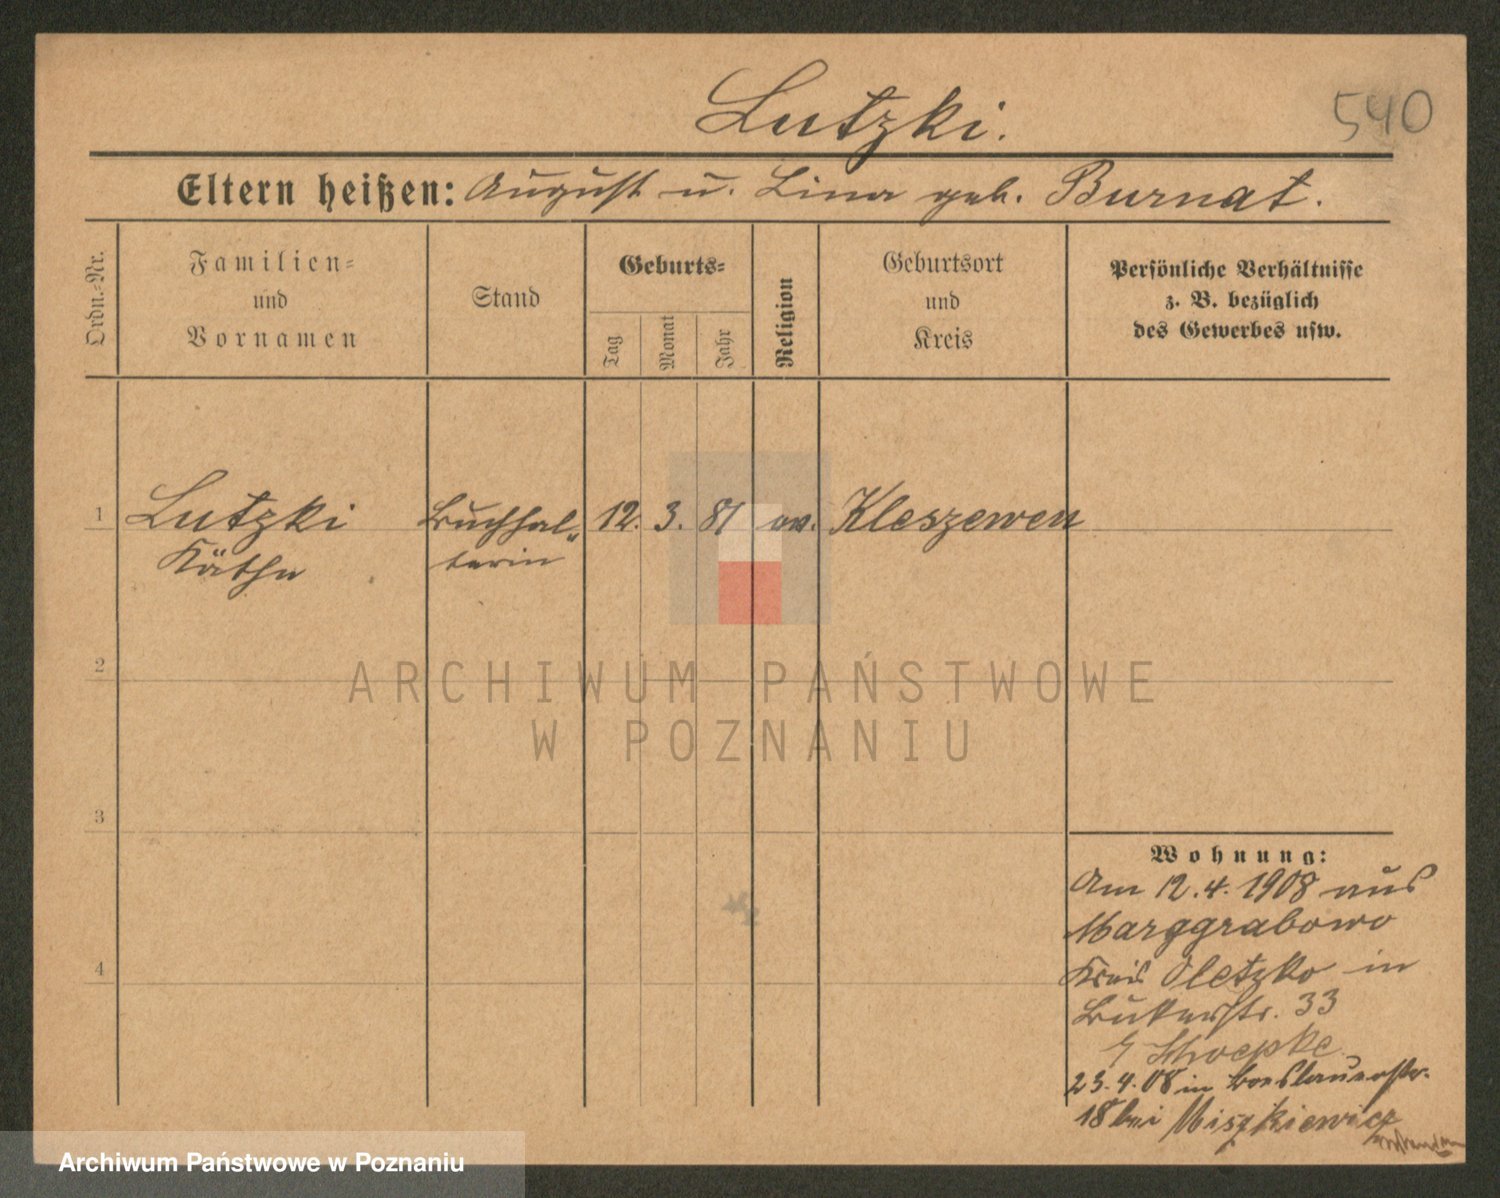 Lutzki.
540
Eltern heißen: August u. Lina geb. Burnat.
Ordn.-Nr.
Familien-
und
Vornamen
Stand
Geburts-
Tag
Monat
Jahr
Religion
Geburtsort
und
Kreis
Persönliche Verhältnisse
z. B. bezüglich
des Gewerbes usw.
1
Lutzki
Käthe
Buchhal-
terin
12. 3. 81 ev. Kleszewen
2
3
4
Wohnung:
Am 12.4.1908 aus
Marggrabowo
Kreis Oletzko in
Bukerstr. 33
Schoepke
23.4.08 in Breslauerstr.
18 bei Miszkiewicz
ARCHIWUM PAŃSTWOWE
W POZNANIU
Archiwum Państwowe w Poznaniu